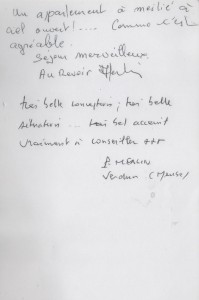 Un appartement à moitié à
ciel ouvert!.... Comme c'est
agréable.
Séjour merveilleux.
Au Revoir
très belle conception; très belle
situation... très bel accueil
vraiment à conseiller +++
P. MERLIN
Verdun (Meuse)